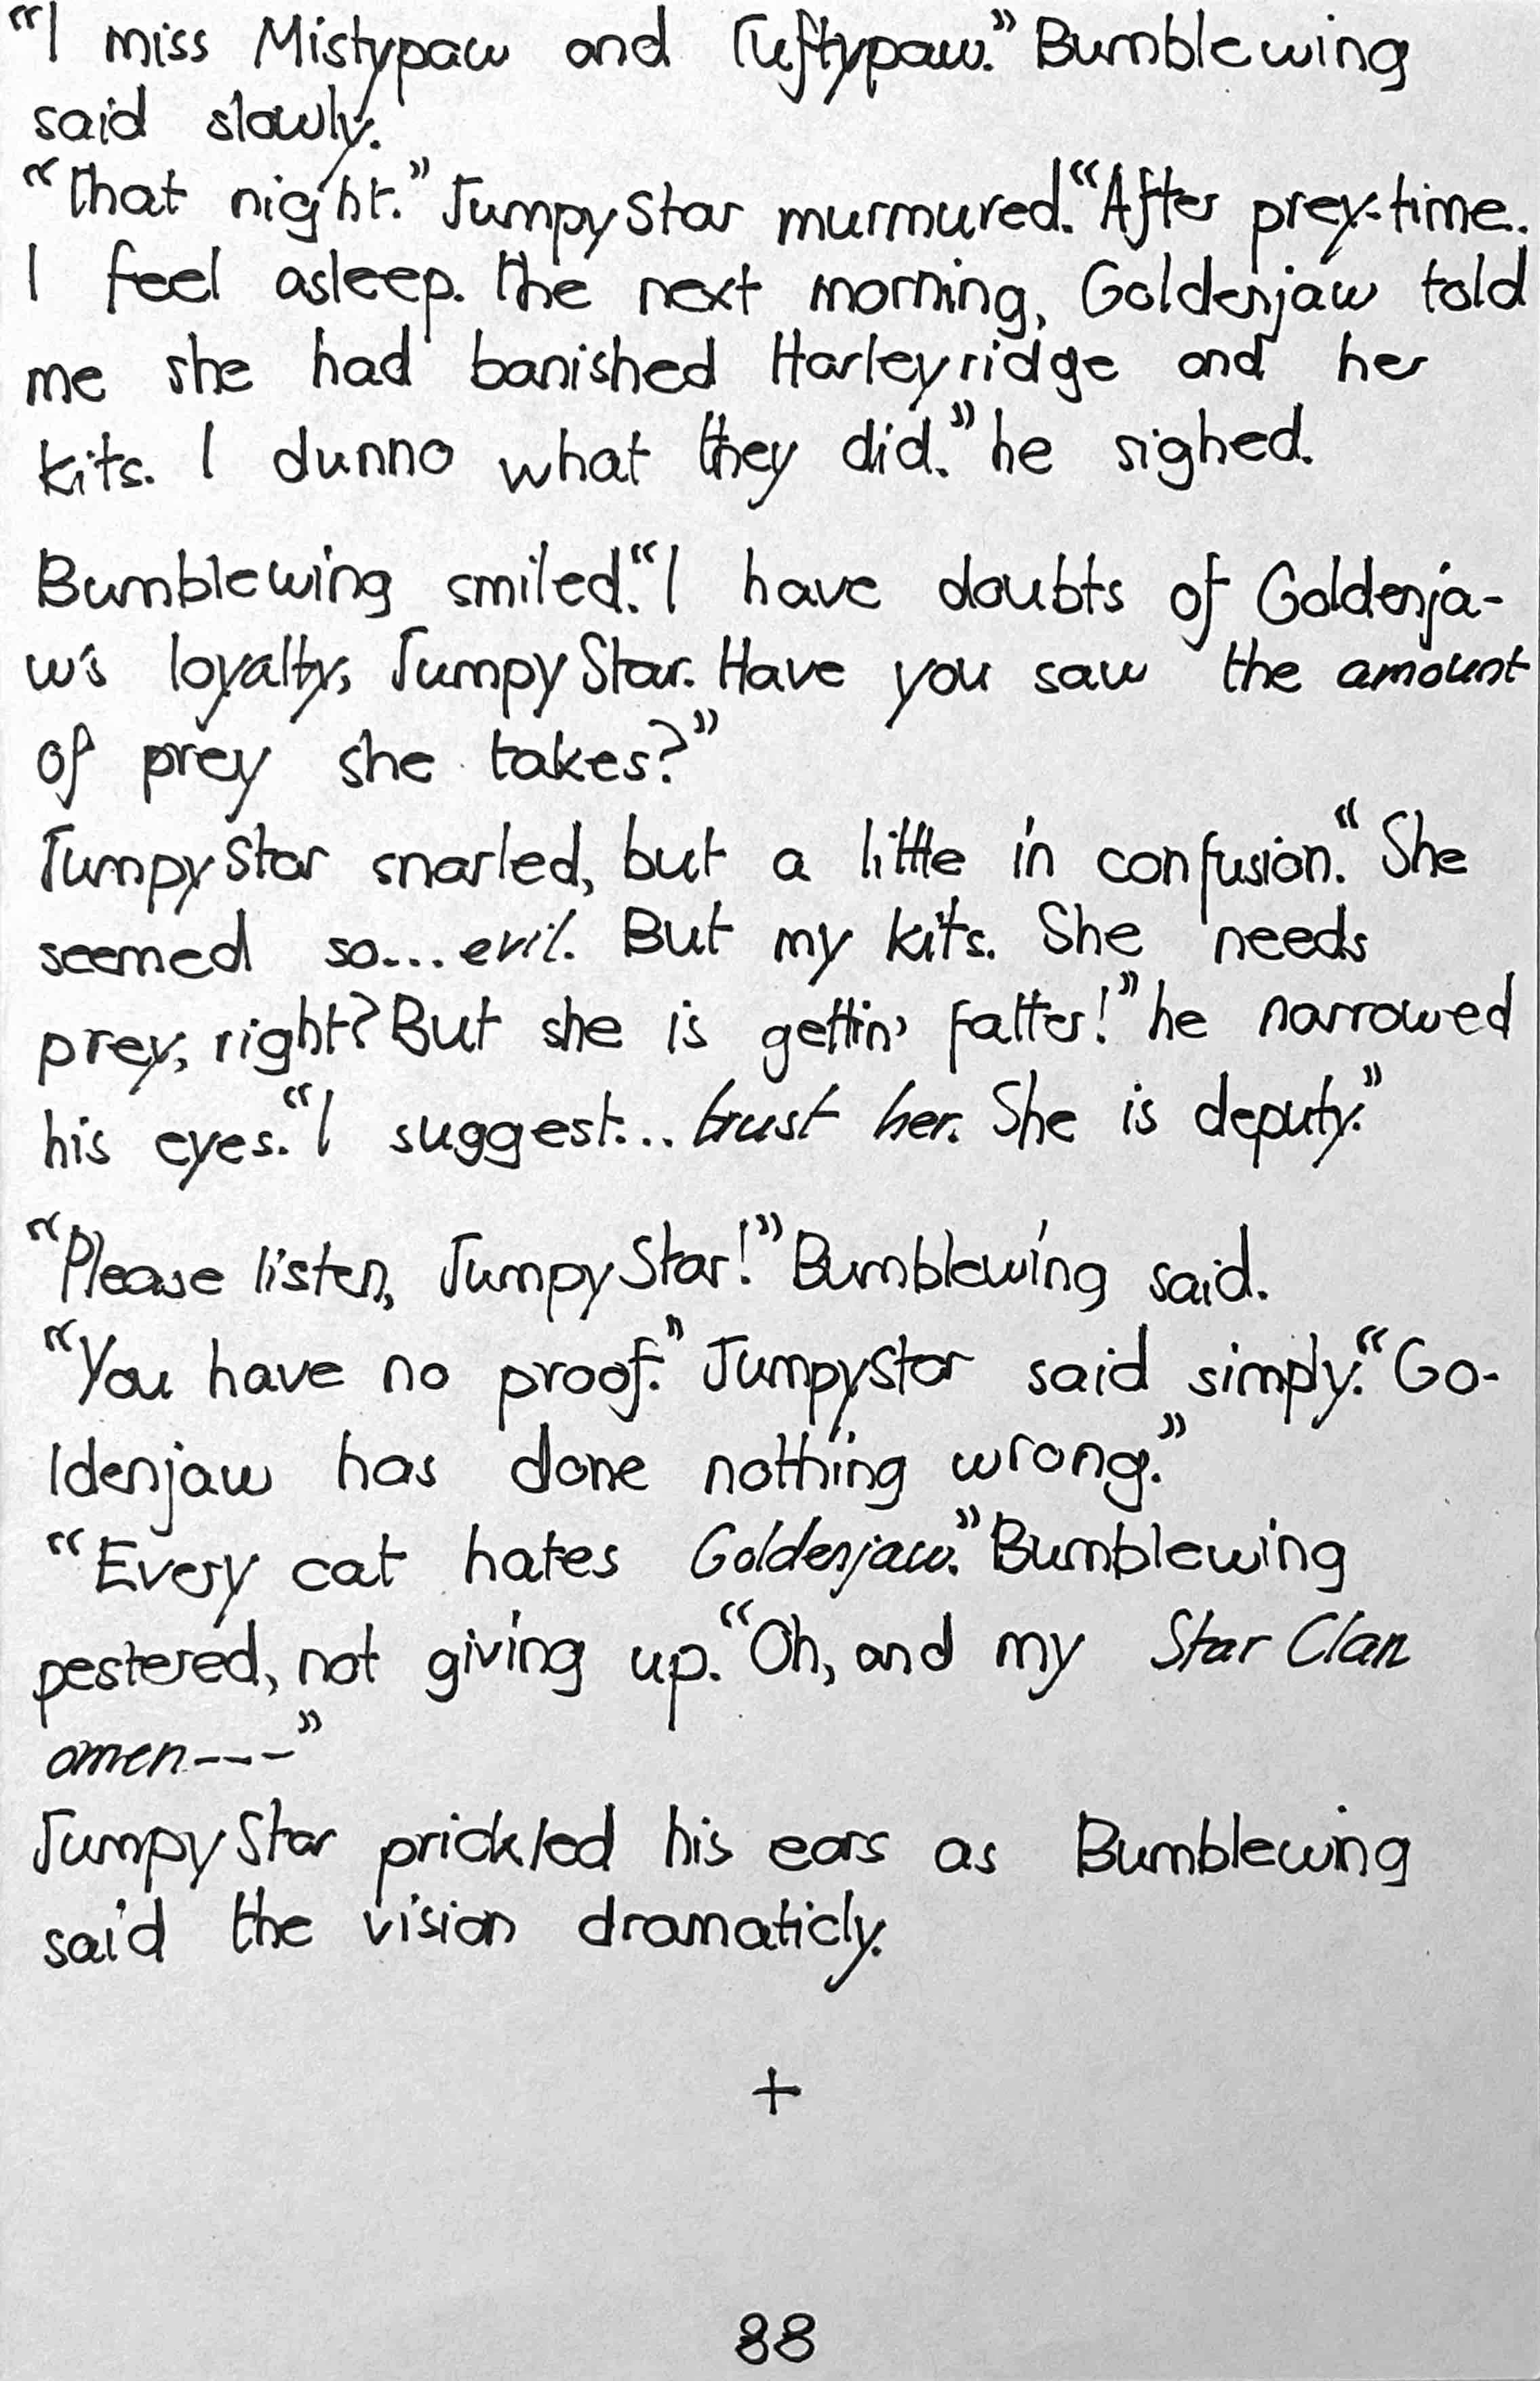 “I miss Mistypaw and Tuftypaw.” Bumblewing
said slowly.
“That night.” JumpyStar murmured. “After prey-time.
I feel asleep. The next morning, Goldenjaw told
me she had banished Harleyridge and her
kits. I dunno what they did.” he sighed.
Bumblewing smiled. “I have doubts of Goldenja-
w's loyalty, JumpyStar. Have you saw the amount
of prey she takes?”
JumpyStar snarled, but a little in confusion. “She
seemed so... evil. But my kits. She needs
prey, right? But she is gettin' fatter!” he narrowed
his eyes. “I suggest... trust her. She is deputy.”
“Please listen, JumpyStar!” Bumblewing said.
“You have no proof.” JumpyStar said simply. “Go-
ldenjaw has done nothing wrong.”
“Every cat hates Goldenjaw.” Bumblewing
pestered, not giving up. “Oh, and my StarClan
omen---”
JumpyStar prickled his ears as Bumblewing
said the vision dramaticly.
+
88